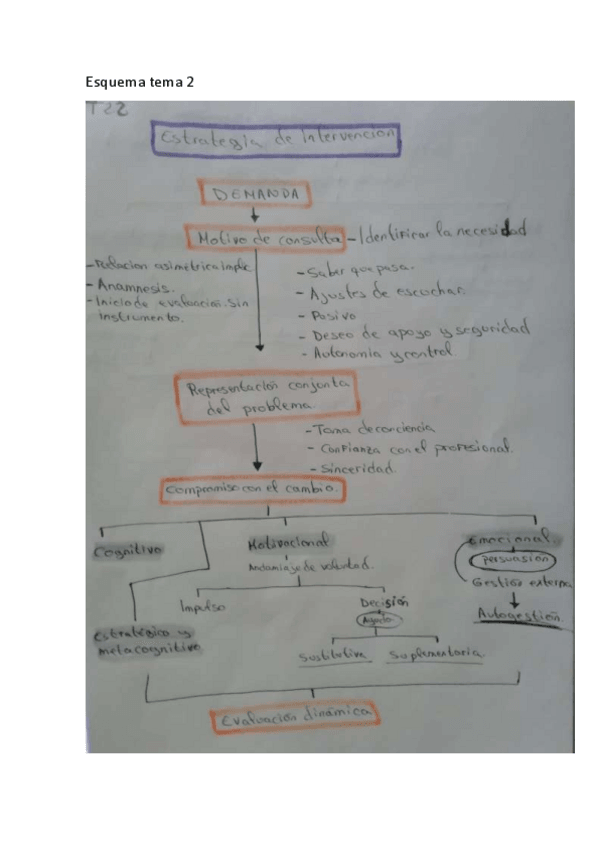 Esquema tema 2
T22
Estrategia de intervención
DEMANDA
Motivo de consulta - Identificar la necesidad
- Relación asimétrica implic
- Anamnesis.
- Inicio de evaluación sin
instrumento.
- Saber que pasa.
- Ajustes de escuchar.
- Pasivo
- Deseo de apoyo y seguridad
- Autonomía y control
Representación conjunta
del problema.
- Toma de conciencia
- Confianza con el profesional.
- Sinceridad.
Compromiso con el cambio.
Cognitivo
Motivacional
Emocional.
Andamiaje de voluntad.
Persuasión
Gestión externa
Impulso
Decisión
Ayuda
Autogestión.
Estratégico y
metacognitivo
Sustitutiva
Suplementaria
Evaluación dinámica